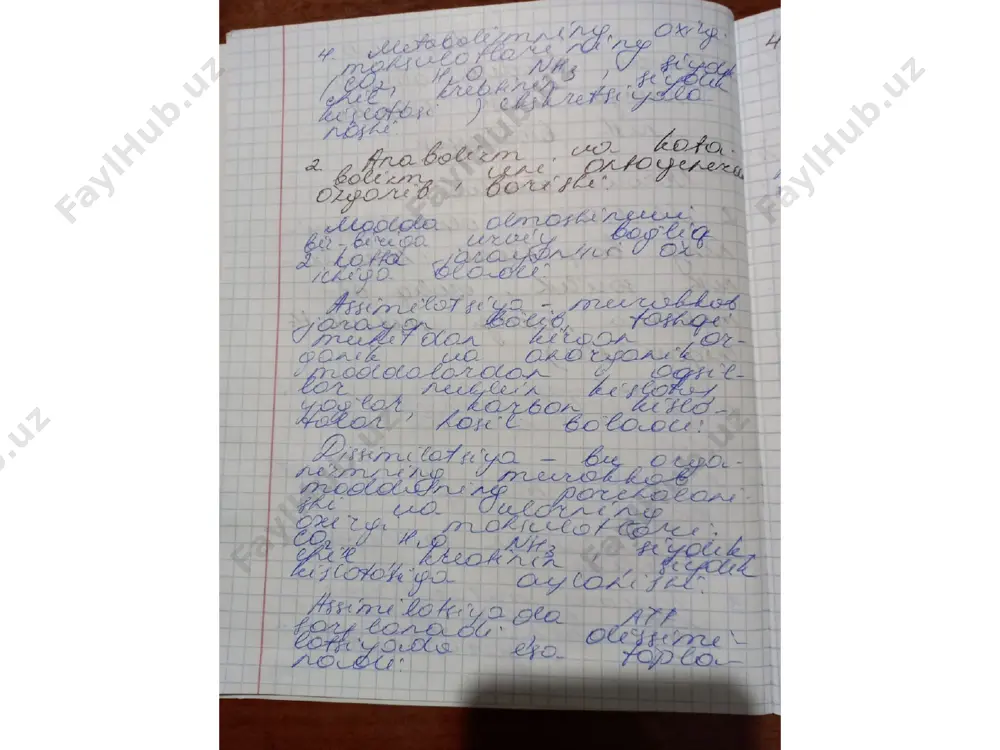 4. Metabolizmning oxirgi
mahsulotlarining
(CO2, H2O, NH3, siydik
chil, kreatinin, siydik
kislotasi) ekskretsiyala
nashi
2. Anabolizm va kata-
bolizm
ozgarib borishi
Modda almashinuvi
bir-biriga uzviy bogliq
2 katta jarayonni oz
ichiga oladi
Assimilatsiya - murakkab
jarayon bolib, tashqi
muhitdan kirgan or-
ganik va anorganik
moddalardan oqsil-
lar nuklein kislotas
yoglar, karbon kislo-
talar hosil boladi:
Dissimilatsiya - bu orga-
nizmning murakkab
moddaning parchalani
shi va ularning
oxirgi mahsulotlari:
CO2 H2O NH3, siydik
chil kreatinin, siydik
kislotasiga aylanishi:
Assimilatsiyada ATF
sarflanadi, dissimi-
latsiyada esa topla-
nadi:
FaylHub.uz
FaylHub.uz
FaylHub.uz
FaylHub.uz
FaylHub.uz
FaylHub.uz